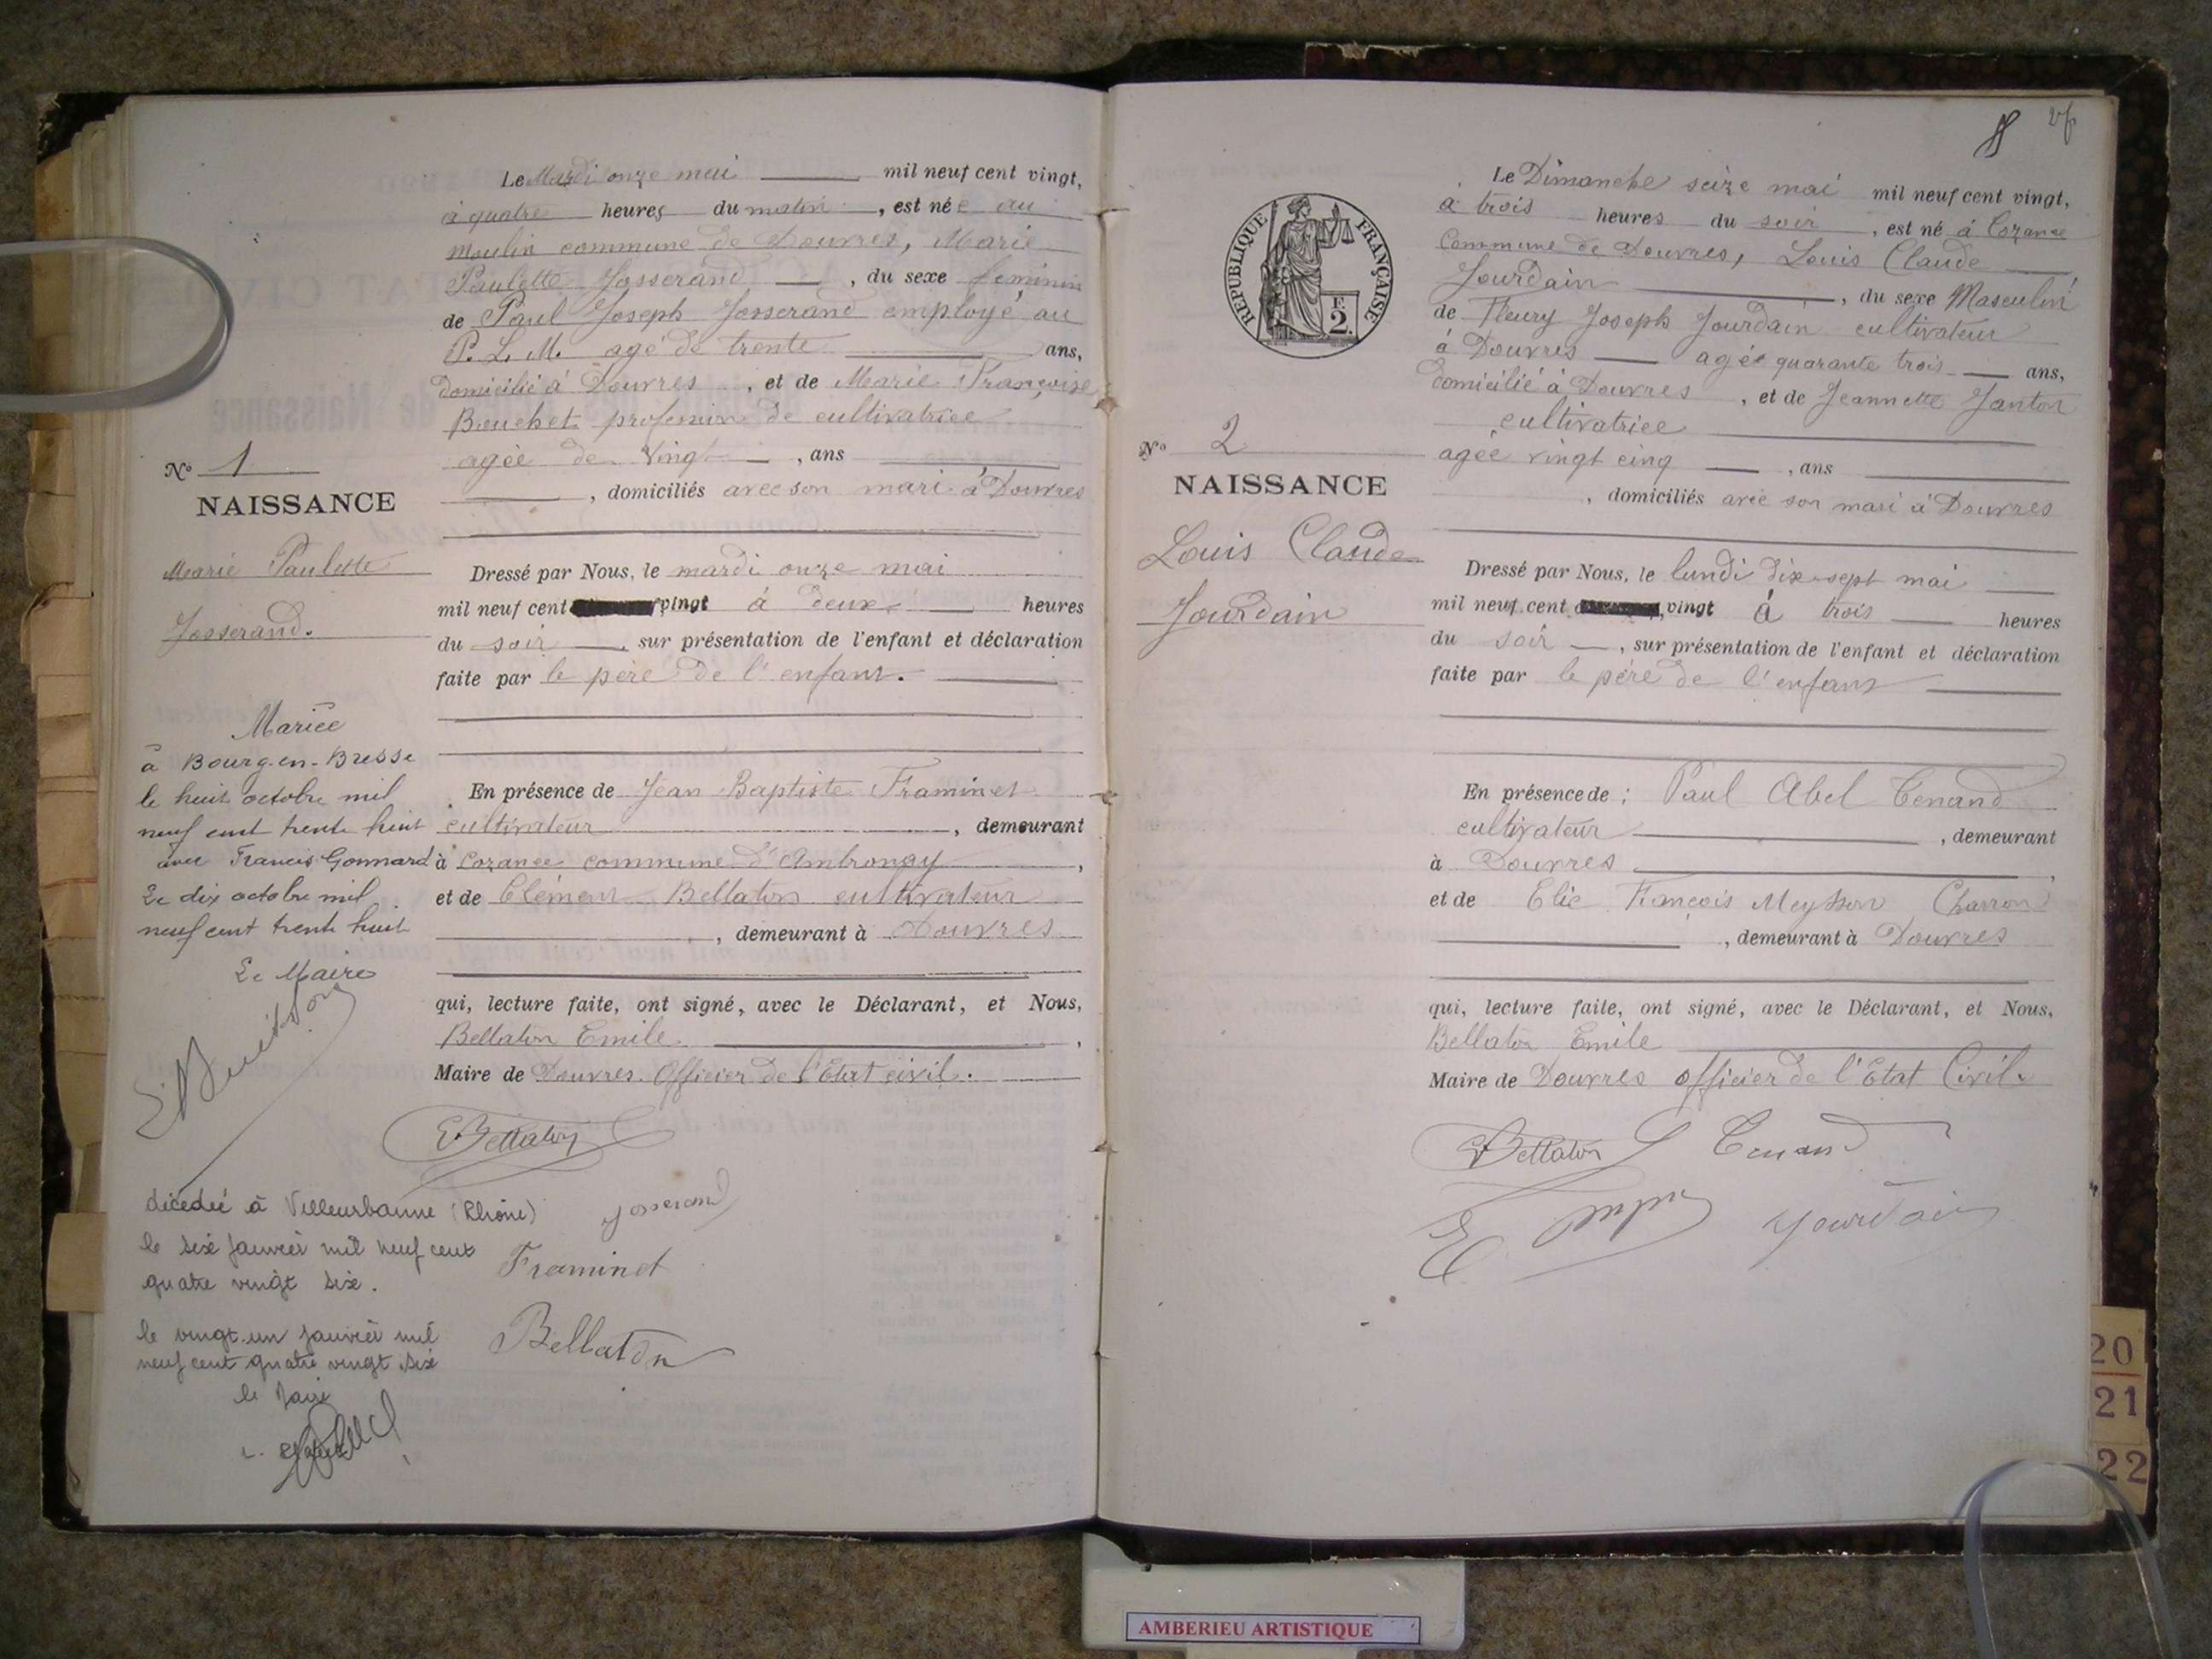 Le Mardi onze mai mil neuf cent vingt,
à quatre heures du matin, est née au
moulin commune de Douvres, Marie
Paulette Josserand, du sexe féminin
de Paul Joseph Josserand employé au
P. L. M. agé de trente ans,
domicilié à Douvres, et de Marie Françoise
Bouchet profession de cultivatrice
agée de vingt, ans
, domiciliés avec son mari à Douvres
N° 1
NAISSANCE
Marie Paulette
Josserand.
Dressé par Nous, le mardi onze mai
mil neuf cent vingt à deux heures
du soir, sur présentation de l'enfant et déclaration
faite par le père de l'enfant.
En présence de Jean Baptiste Framinet
cultivateur, demeurant
à Cozance commune d'Ambronay,
et de Clément Bellaton cultivateur
, demeurant à Douvres
qui, lecture faite, ont signé, avec le Déclarant, et Nous,
Bellaton Emile,
Maire de Douvres. Officier de l'Etat civil.
EBellaton
Josserand
Framinet
Bellaton
Mariée
à Bourg-en-Bresse
le huit octobre mil
neuf cent trente huit
avec Francis Gonnard
Le dix octobre mil
neuf cent trente huit
Le Maire
décédée à Villeurbanne (Rhône)
le six janvier mil neuf cent
quatre vingt six.
le vingt-un janvier mil
neuf cent quatre vingt six
le Maire
8
RÉPUBLIQUE FRANÇAISE
2
Le Dimanche seize mai mil neuf cent vingt,
à trois heures du soir, est né à Cozance
Commune de Douvres, Louis Claude
Jourdain, du sexe Masculin
de Fleury Joseph Jourdain cultivateur
à Douvres agée quarante trois ans,
domicilié à Douvres, et de Jeannette Janton
cultivatrice
agée vingt cinq, ans
, domiciliés avec son mari à Douvres
N° 2
NAISSANCE
Louis Claude
Jourdain
Dressé par Nous, le lundi dix-sept mai
mil neuf cent vingt à trois heures
du soir, sur présentation de l'enfant et déclaration
faite par le père de l'enfant
En présence de : Paul Abel Tenand
cultivateur, demeurant
à Douvres,
et de Elie François Meysson Charron
, demeurant à Douvres
qui, lecture faite, ont signé, avec le Déclarant, et Nous,
Bellaton Emile
Maire de Douvres officier de l'Etat Civil.
EBellaton Tenand
Jourdain
20
21
22
AMBERIEU ARTISTIQUE